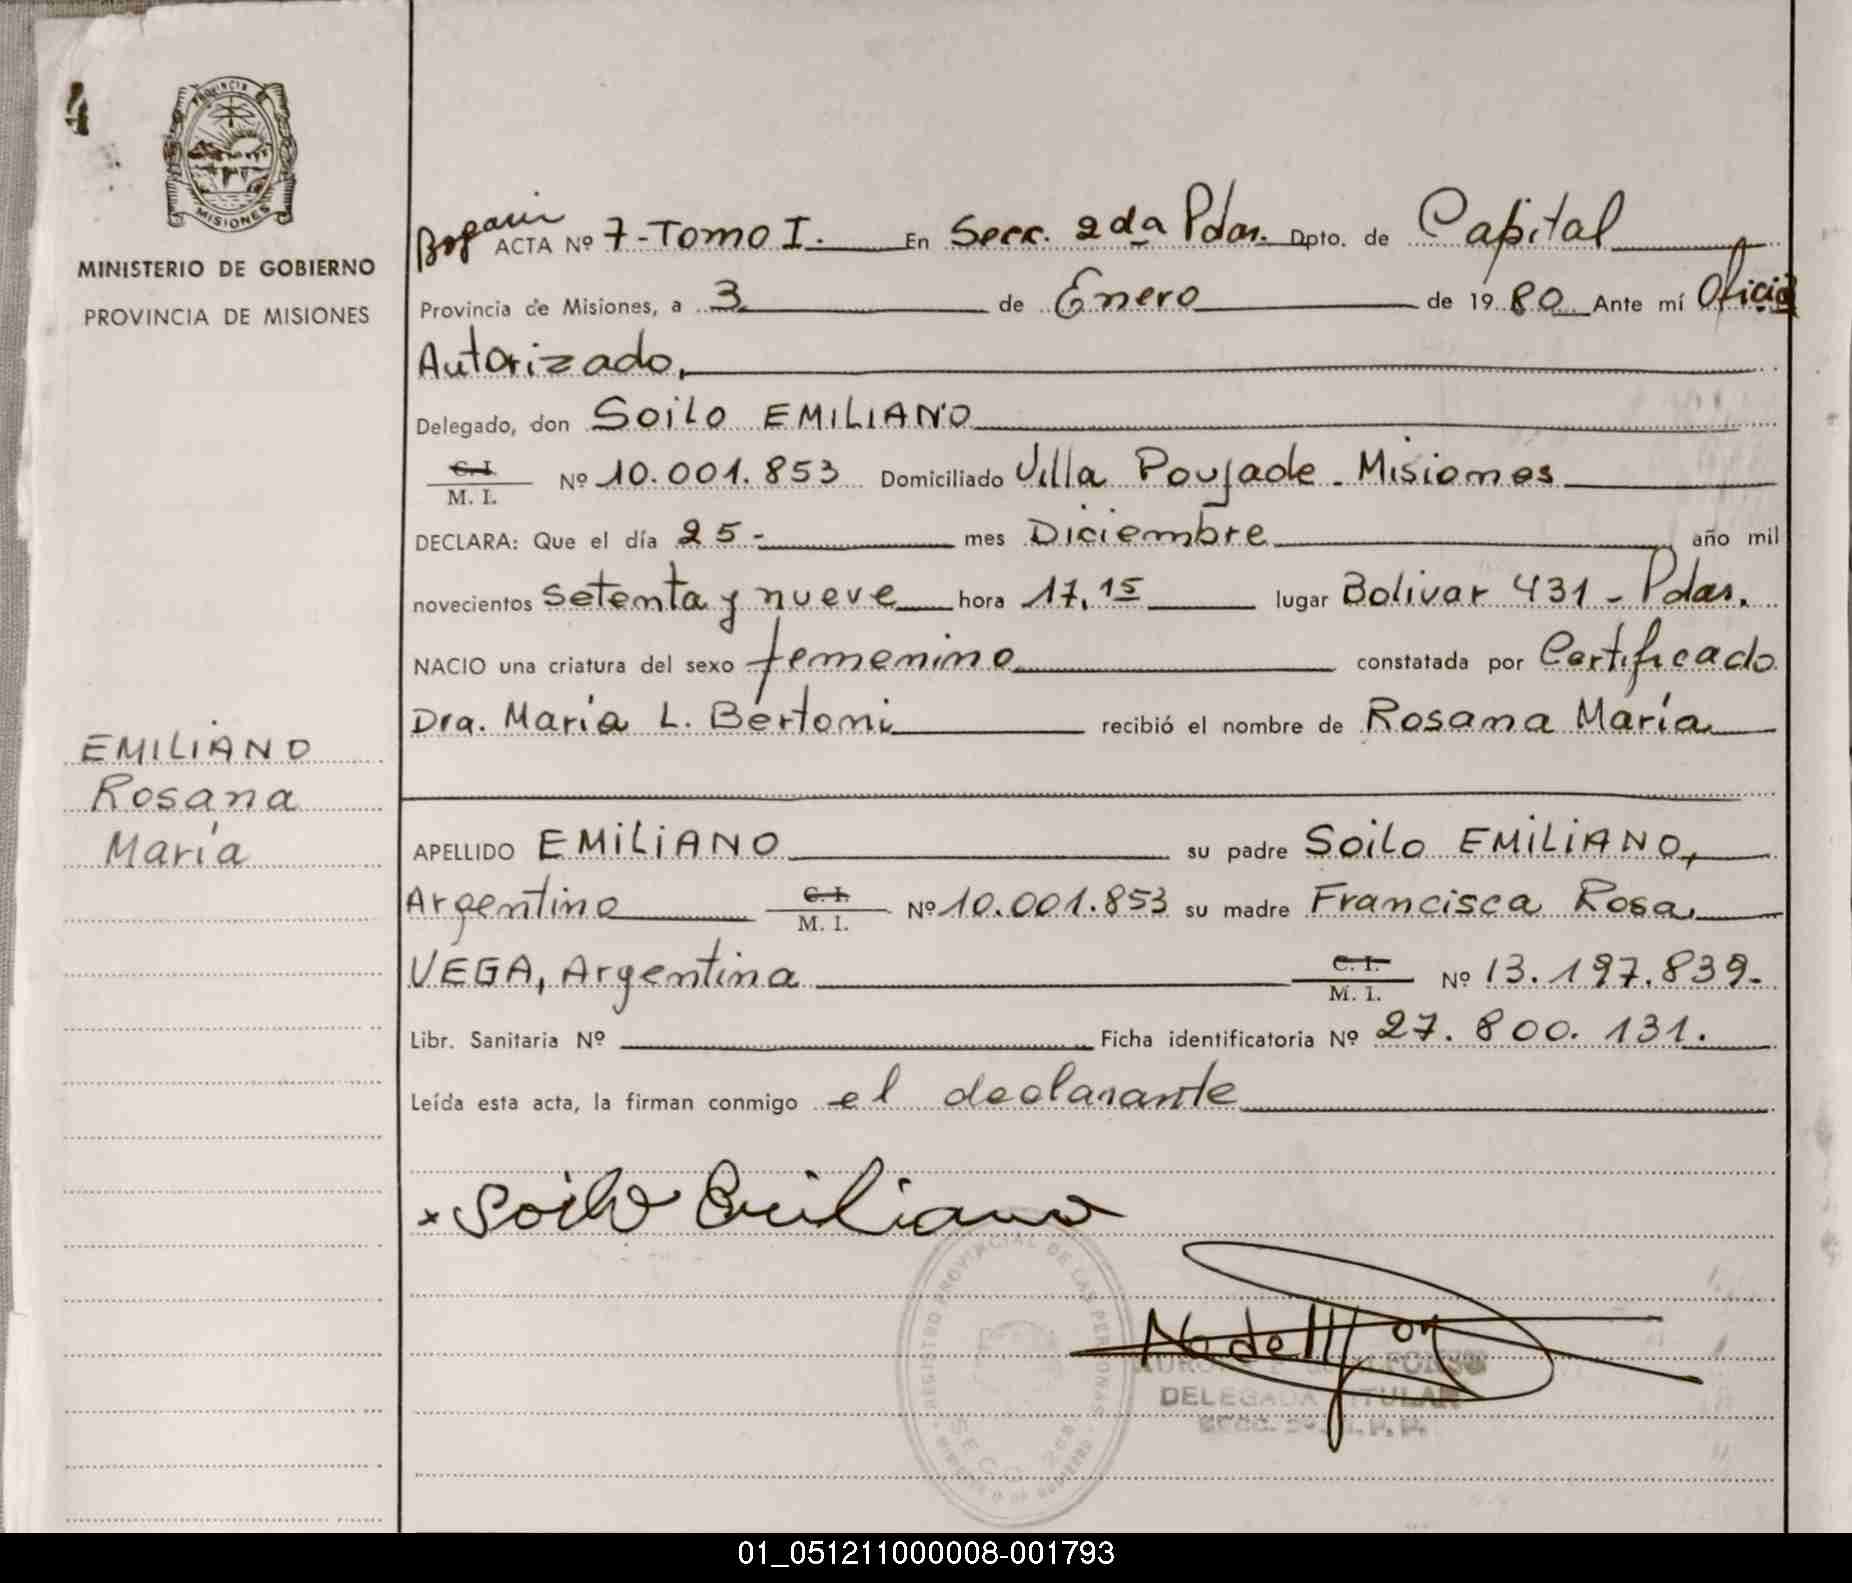 4
PROVINCIA DE
MISIONES
MINISTERIO DE GOBIERNO
PROVINCIA DE MISIONES
EMILIANO
Rosana
María
ACTA Nº 7-Tomo I. En Secc. 2da Pdas. Dpto. de Capital
Provincia de Misiones, a 3 de Enero de 1980 Ante mí Oficial
Autorizado,
Delegado, don Soilo EMILIANO
C. I.
M. I. Nº 10.001.853 Domiciliado Villa Poujade - Misiones
DECLARA: Que el día 25- mes Diciembre año mil
novecientos setenta y nueve hora 17,15 lugar Bolivar 431 - Pdas.
NACIO una criatura del sexo femenino constatada por Certificado
Dra. María L. Bertoni recibió el nombre de Rosana María
APELLIDO EMILIANO su padre Soilo EMILIANO,
Argentino C. I. M. I. Nº 10.001.853 su madre Francisca Rosa
VEGA, Argentina C. I. M. I. Nº 13.197.839.
Libr. Sanitaria Nº Ficha identificatoria Nº 27.800.131.
Leída esta acta, la firman conmigo el declarante
x Soilo Emiliano
REGISTRO PROVINCIAL DE LAS PERSONAS
DELEGADA TITULAR
01_051211000008-001793